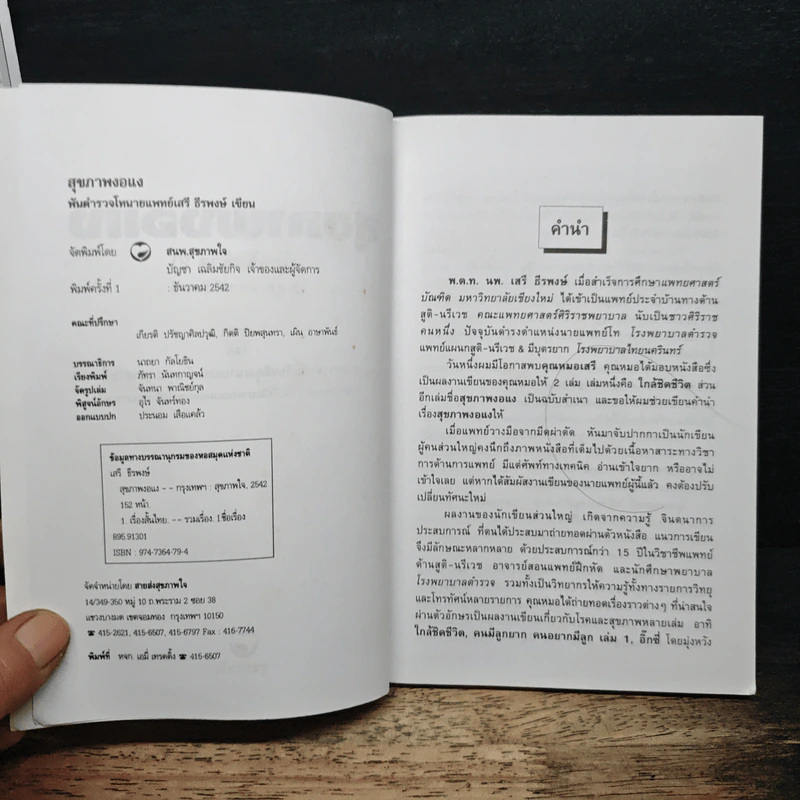 สุขภาพงอแง
พันตำรวจโทนายแพทย์เสรี ธีรพงษ์ เขียน
จัดพิมพ์โดย สนพ.สุขภาพใจ
บัญชา เฉลิมชัยกิจ เจ้าของและผู้จัดการ
พิมพ์ครั้งที่ 1 : ธันวาคม 2542
คณะที่ปรึกษา
เกียรติ ปรัชญาศิลปวุฒิ, กิตติ ปิยพสุนทรา, เผิน อาษาพันธ์
บรรณาธิการ นาถยา กัลโยธิน
เรียงพิมพ์ ภัทรา นันทกาญจน์
จัดรูปเล่ม จันทนา พาณิชย์กุล
พิสูจน์อักษร อุไร จันทร์ทอง
ออกแบบปก ประนอม เสือแคล้ว
ข้อมูลทางบรรณานุกรมของหอสมุดแห่งชาติ
เสรี ธีรพงษ์
สุขภาพงอแง -- กรุงเทพฯ : สุขภาพใจ, 2542
152 หน้า.
1. เรื่องสั้นไทย. -- รวมเรื่อง. I.ชื่อเรื่อง
895.91301
ISBN : 974-7364-79-4
จัดจำหน่ายโดย สายส่งสุขภาพใจ
14/349-350 หมู่ 10 ถ.พระราม 2 ซอย 38
แขวงบางมด เขตจอมทอง กรุงเทพฯ 10150
☎ 415-2621, 415-6507, 415-6797 Fax : 416-7744
พิมพ์ที่ หจก. เอมี่ เทรดดิ้ง ☎ 415-6507
คำนำ
พ.ต.ท. นพ. เสรี ธีรพงษ์ เมื่อสำเร็จการศึกษาแพทยศาสตร์
บัณฑิต มหาวิทยาลัยเชียงใหม่ ได้เข้าเป็นแพทย์ประจำบ้านทางด้าน
สูติ-นรีเวช คณะแพทยศาสตร์ศิริราชพยาบาล นับเป็นชาวศิริราช
คนหนึ่ง ปัจจุบันดำรงตำแหน่งนายแพทย์โท โรงพยาบาลตำรวจ
แพทย์แผนกสูติ-นรีเวช & มีบุตรยาก โรงพยาบาลไทยนครินทร์
วันหนึ่งผมมีโอกาสพบคุณหมอเสรี คุณหมอได้มอบหนังสือซึ่ง
เป็นผลงานเขียนของคุณหมอให้ 2 เล่ม เล่มหนึ่งคือ ใกล้ชิดชีวิต ส่วน
อีกเล่มชื่อสุขภาพงอแง เป็นฉบับสำเนา และขอให้ผมช่วยเขียนคำนำ
เรื่องสุขภาพงอแงให้
เมื่อแพทย์วางมือจากมีดผ่าตัด หันมาจับปากกาเป็นนักเขียน
ผู้คนส่วนใหญ่คงนึกถึงภาพหนังสือที่เต็มไปด้วยเนื้อหาสาระทางวิชา
การด้านการแพทย์ มีแต่ศัพท์ทางเทคนิค อ่านเข้าใจยาก หรืออาจไม่
เข้าใจเลย แต่หากได้สัมผัสงานเขียนของนายแพทย์ผู้นี้แล้ว คงต้องปรับ
เปลี่ยนทัศนะใหม่
ผลงานของนักเขียนส่วนใหญ่ เกิดจากความรู้ จินตนาการ
ประสบการณ์ ที่ตนได้ประสบมาถ่ายทอดผ่านตัวหนังสือ แนวการเขียน
จึงมีลักษณะหลากหลาย ด้วยประสบการณ์กว่า 15 ปีในวิชาชีพแพทย์
ด้านสูติ-นรีเวช อาจารย์สอนแพทย์ฝึกหัด และนักศึกษาพยาบาล
โรงพยาบาลตำรวจ รวมทั้งเป็นวิทยากรให้ความรู้ทั้งทางรายการวิทยุ
และโทรทัศน์หลายรายการ คุณหมอได้ถ่ายทอดเรื่องราวต่างๆ ที่น่าสนใจ
ผ่านตัวอักษรเป็นผลงานเขียนเกี่ยวกับโรคและสุขภาพหลายเล่ม อาทิ
ใกล้ชิดชีวิต, คนมีลูกยาก คนอยากมีลูก เล่ม 1, อิ๊กซี่ โดยมุ่งหวัง